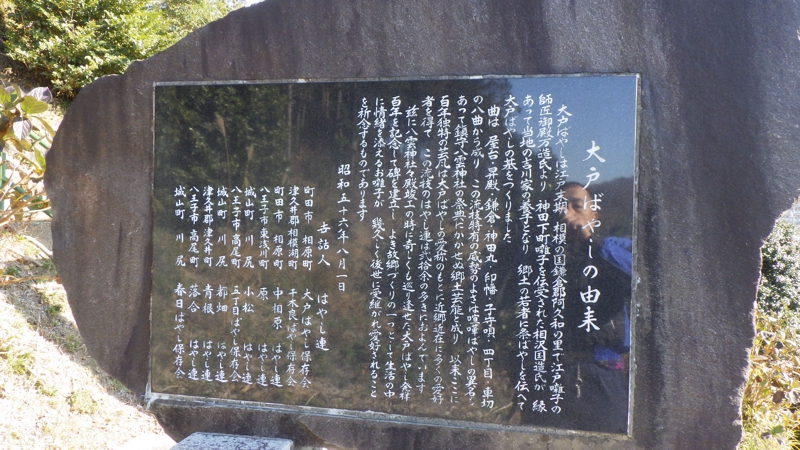 大戸ばやしの由来
大戸ばやしは江戸末期 相模の国鎌倉郡阿久和の里で江戸囃子の
師匠御殿万造氏より 神田下町囃子を伝受された相沢国造氏が 縁
あって当地の吉川家の養子となり 郷土の若者に祭ばやしを伝へて
大戸ばやしの基をつくりました
曲は 屋台・昇殿・鎌倉・神田丸・印幡・子守唄・四丁目・車切
の八曲から成り この流技特有の威勢のよさは喧嘩ばやしの異名も
あって鎮守八雲神社の祭典にかかせぬ郷土芸能と成り 以来ここに
百年独特の芸風は大戸ばやしの愛称のもとに近郷近在に多くの愛好
者を得て この流技のはやし連は弐拾余の多きにおよんでいます
茲に八雲神社々殿竣工の時に奇しくも巡り来せた大戸ばやし発祥
百年を記念して碑を建立し よき故郷づくりの一つとして生活の中
に情緒を添えるお囃子が 幾久しく後世に受継がれ愛好されること
を祈念するものであります
昭和五十六年八月一日
世話人 はやし連
町田市 相原町 大戸ばやし保存会
津久井郡相模湖町 千木良はやし保存会
町田市 相原町 中相原 はやし連
八王子市東浅川町 原 はやし連
城山町 川尻 小松 はやし連
八王子市高尾町 五丁目はやし保存会
城山町 川尻 都畑 はやし連
津久井郡津久井町 青根 はやし連
八王子市高尾町 落合 はやし連
城山町 川尻 春日ばやし保存会